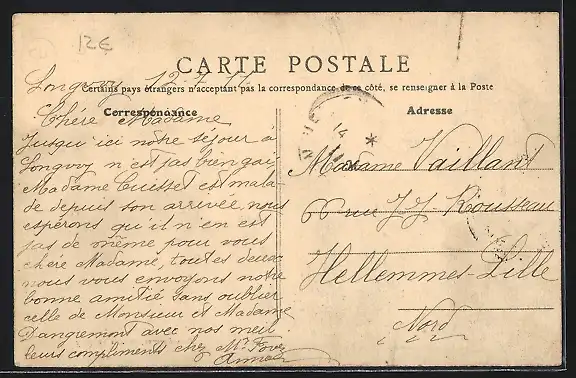 12€
CARTE POSTALE
Certains pays étrangers n'acceptant pas la correspondance de ce côté, se renseigner à la Poste
Longwy 12-7-11
Correspondance
Chére Madame
Jusqu'ici nôtre séjour à
Longwy n'est pas bien gai
Madame Cuisset est mala-
de depuis son arrivée, nous
esperons qu'il n'en est
pas de même pour vous
chére Madame, toutes deux
nous vous envoyons nôtre
bonne amitié sans oublier
celle de Monsieur et Madame
Dangremont avec nos meil
leurs compliments chez Mr
Anna
Adresse
14
Madame Vaillant
66 rue J J Rousseau
Hellemmes-Lille
Nord